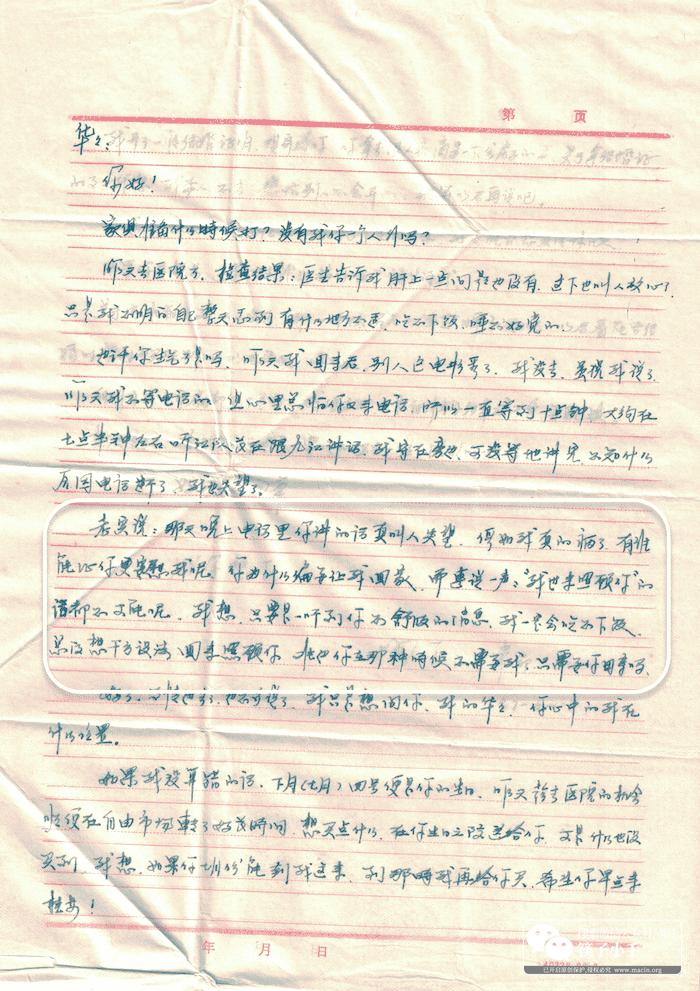 第 页
华々:
你好!
家俱准备什么时候打?没有我你一个人行吗?
昨天去医院了,检查结果:医生告诉我肝上一点问题也没有,这下也叫人放心了。
只是我不明白自己整天感到有什么地方不适,吃不下饭,睡不好觉的。
也许你生气了吗,昨天我回来后,别人已电影看了,我没去,虽然我说了
昨天我不等电话的,但心里总怕你又来电话,所以一直等到十点钟,大约在
七点半钟左右听江队长在跟九江讲话,我守在旁边,可没等他讲完,不知什么
原因电话断了,我失望了。
老实说:那天晚上电话里你讲的话真叫人失望,假如我真的病了,有谁
能比你更安慰我呢,你为什么偏要让我回家,而连说一声:"我也来照顾你"的
话都不可能呢,我想,只要是一听到你不舒服的消息,我一定会吃不下饭,
总设想千方设法回来照顾你,难道你在那种时候不需要我,只需要你回来吗,
好了,不管他了,也不多说了,我只是想问你,我的华々,你心中的我在
什么位置。
如果我没算错的话,下月(七月)四号便是你的生日,昨天趁去医院的机会
顺便在自由市场转了好长时间,想买点什么,在你生日之际送给你,可是什么也没
买到,我想,如果你七月份能到我这来,到那时我再给你买,希望你早点来
桂安!
年 月 日
已开启原创保护,侵权必究 www.macin.org